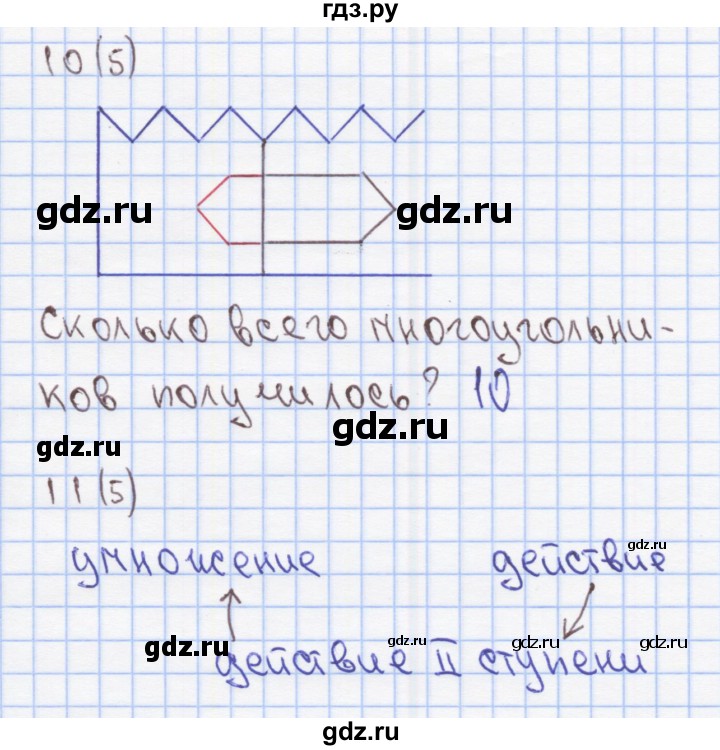 гдз.ру
10(5)
gdz.ru gdz.ru
Сколько всего многоугольни-
ков получилось? 10
gdz.ru
gdz.ru
11(5)
умножение действие
gdz.ru
gdz.ru gdz.ru gdz.ru gdz.ru
действие II ступени
gdz.ru